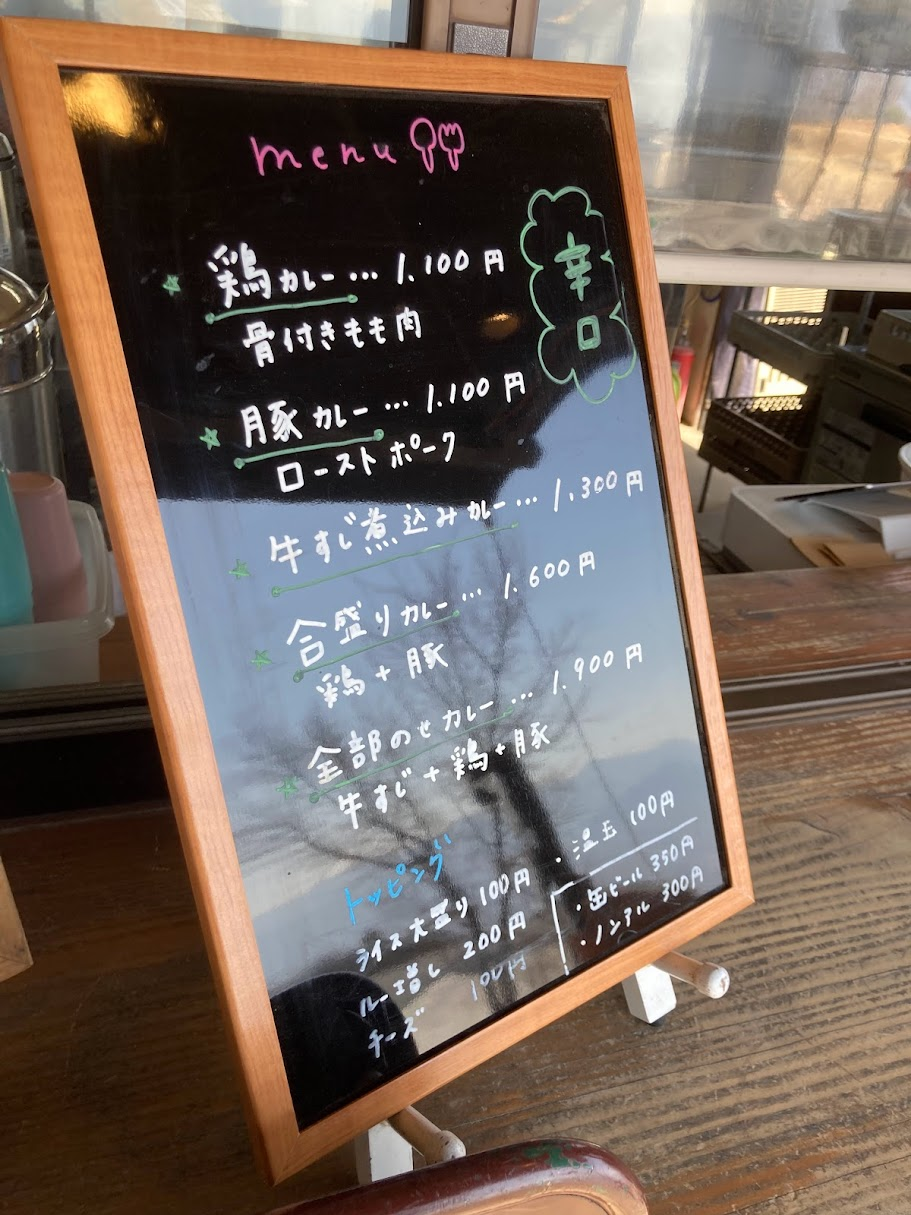 menu
辛口
鶏カレー… 1.100円
骨付きもも肉
豚カレー… 1.100円
ローストポーク
牛すじ煮込みカレー… 1.300円
合盛りカレー… 1.600円
鶏+豚
全部のせカレー… 1.900円
牛すじ+鶏+豚
トッピング
ライス大盛り 100円
ルー増し 200円
チーズ 100円
・温玉 100円
・缶ビール 350円
・ノンアル 300円